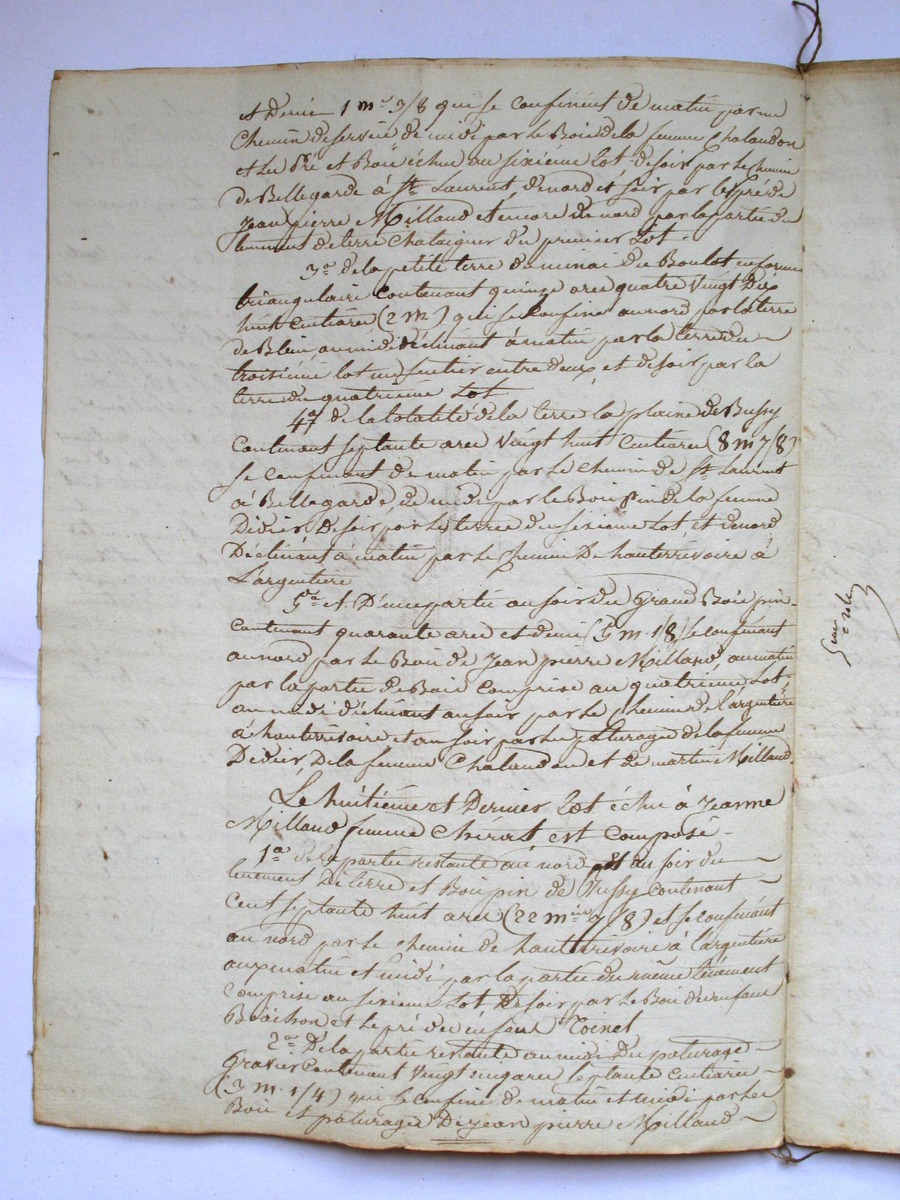 et Demie 1 m.e 7/8 qui se confinent de matin par un
Chemin de service de midi par le Bois de la femme Chalandon
et le Pré et Bois échu au sixiéme lot de soir par le chemin
de Bellegarde à St Laurent, de nord et soir par le pré de
Jean pierre Milland et encore de nord par la partie du
tenement de terre Chataigner du premier Lot.
3° de la petite terre du Boulot en forme
triangulaire contenant quinze ares quatre vingt Dix
huit centiares (2 m) qui se confine au nord par la terre
de Blein, au midi déclinant à matin par la terre du
troisiéme lot un sentier entre deux, et de soir par la
terre du quatriéme Lot
4° de la totalité de la terre la plaine de Bussy
contenant septante ares vingt huit centiares (8 m 7/8)
se confinant de matin par le chemin de St Laurent
à Bellegarde, de midi par le Bois pin de la femme
Didier, de soir par les terres du sixieme Lot, et de nord
Déclinant à matin par le chemin De hauterivoire à
L'argentiere
5° Et D'une partie au soir du Grand Bois pin
contenant quarante ares et demi (5 m 1/8) se confinant
au nord par le Bois de Jean pierre Milland, au matin
par la partie de Bois comprise au quatriéme Lot,
au midi déclinant au soir par le chemin de L'argentiere
à hauterivoire et au soir par les paturages de la femme
Didier, De la femme Chalandon et de martin Milland
Le huitiéme et Dernier Lot échu à Jeanne
Milland femme est composé
1° de la partie restante au nord et au soir du
tenement De terre et Bois pin de Bussy contenant
Cent septante huit ares (22 m 7/8) et se confinant
au nord par le chemin de hauterivoire à L'argentiere
aux matin et midi par la partie du même ténement
comprise au sixieme Lot De soir par le Bois des enfans
et le pré des enfans Toinel
2° De la partie restante au midi Du paturage
Gravier contenant vingt cinq ares septante centiares
(3 m. 1/4) qui se confine de matin et midi par les
Bois et paturages De Jean pierre Milland